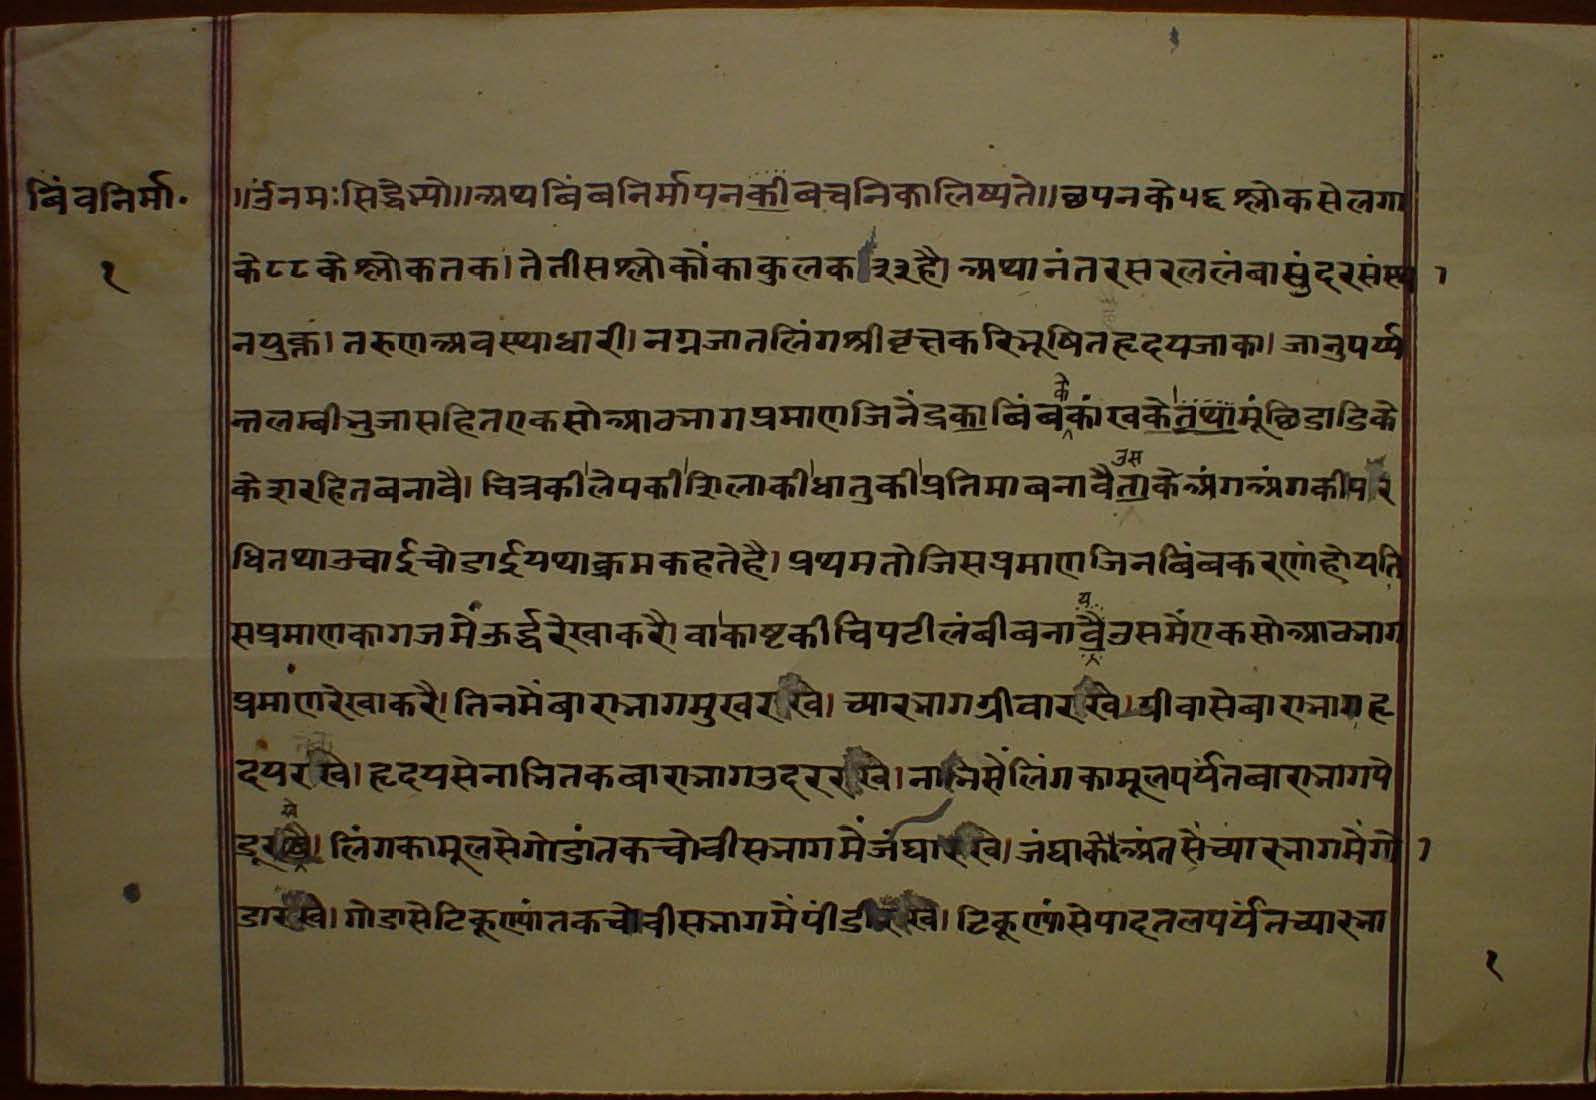 बिंवनिर्मा॰
१
॥ॐनमःसिद्धेभ्यो॥अथबिंबनिर्मापनकीबचनिकालिष्यते॥छपनके५६श्लोकसेलगा
के८८केश्लोकतक।तेतीसश्लोकोंकाकुलक३३है।अथानंतरसरललंबासुंदरसंस्था
नयुक्त।तरुणअवस्थाधारी।नग्नजातलिंगश्रीवृत्तकरिभूषितहृदयजाका।जानुपर्य्य
न्तलम्बीभुजासहितएकसोआठभागप्रमाणजिनेंद्रकाबिंबकेकांखकेतथामूंछिडाडिके
केशरहितबनावै।चित्रकीलेपकीशिलाकीधातुकीप्रतिमाबनावैउसताकेअंगअंगकीपरि
धितथाउचाईचोडाईयथाक्रमकहतेहै।प्रथमतोजिसप्रमाणजिनबिंबकरणोंहोयति
सप्रमाणकागजमेंऊर्द्धरेखाकरै।वाकाष्टकीचिपटीलंबीबनायवैउसमेंएकसोआठभाग
प्रमाणरेखाकरै।तिनमेंबाराभागमुखराखे।च्यारभागग्रीवाराखे।ग्रीवासेबाराभागहृ
दयराखे।हृदयसेनाभितकबाराभागउदरराखे।नाभिसेंलिंगकामूलपर्यंतबाराभागपे
डूराखे।लिंगकामूलसेगोडांतकचोवीसभागमेंजंघाराखे।जंघाकेअंतसेंच्यारभागमेंगो
डाराखे।गोडासेटिकूण्यांतकचोवीसभागमेंपींडीराखे।टिकूण्यांसेपादतलपर्यंतच्यारभा
१